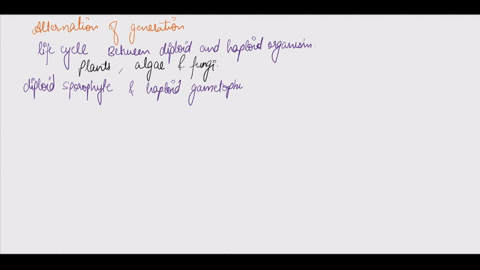 Alternation of generation
life cycle Between diploid and haploid organisms
Plants, algae & fungi.
diploid sporophyte & haploid gametophy